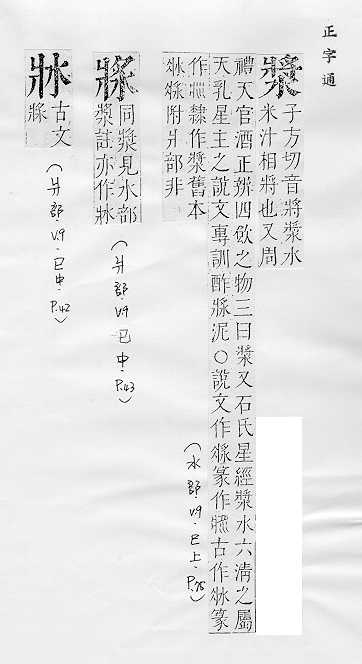 正字通
漿
子方切音將漿水
米汁相將也又周
禮天官酒正辨四飲之物三曰漿又石氏星經漿水六清之屬
天乳星主之說文專訓酢泥○說文作篆作古作篆
作隸作漿舊本
附爿部非
(水部.V.9.巳上.P.75)
同漿見水部
漿註亦作
(爿部.V.9巳中.P.43)
古文
(爿部.V.9.巳中.P.42)